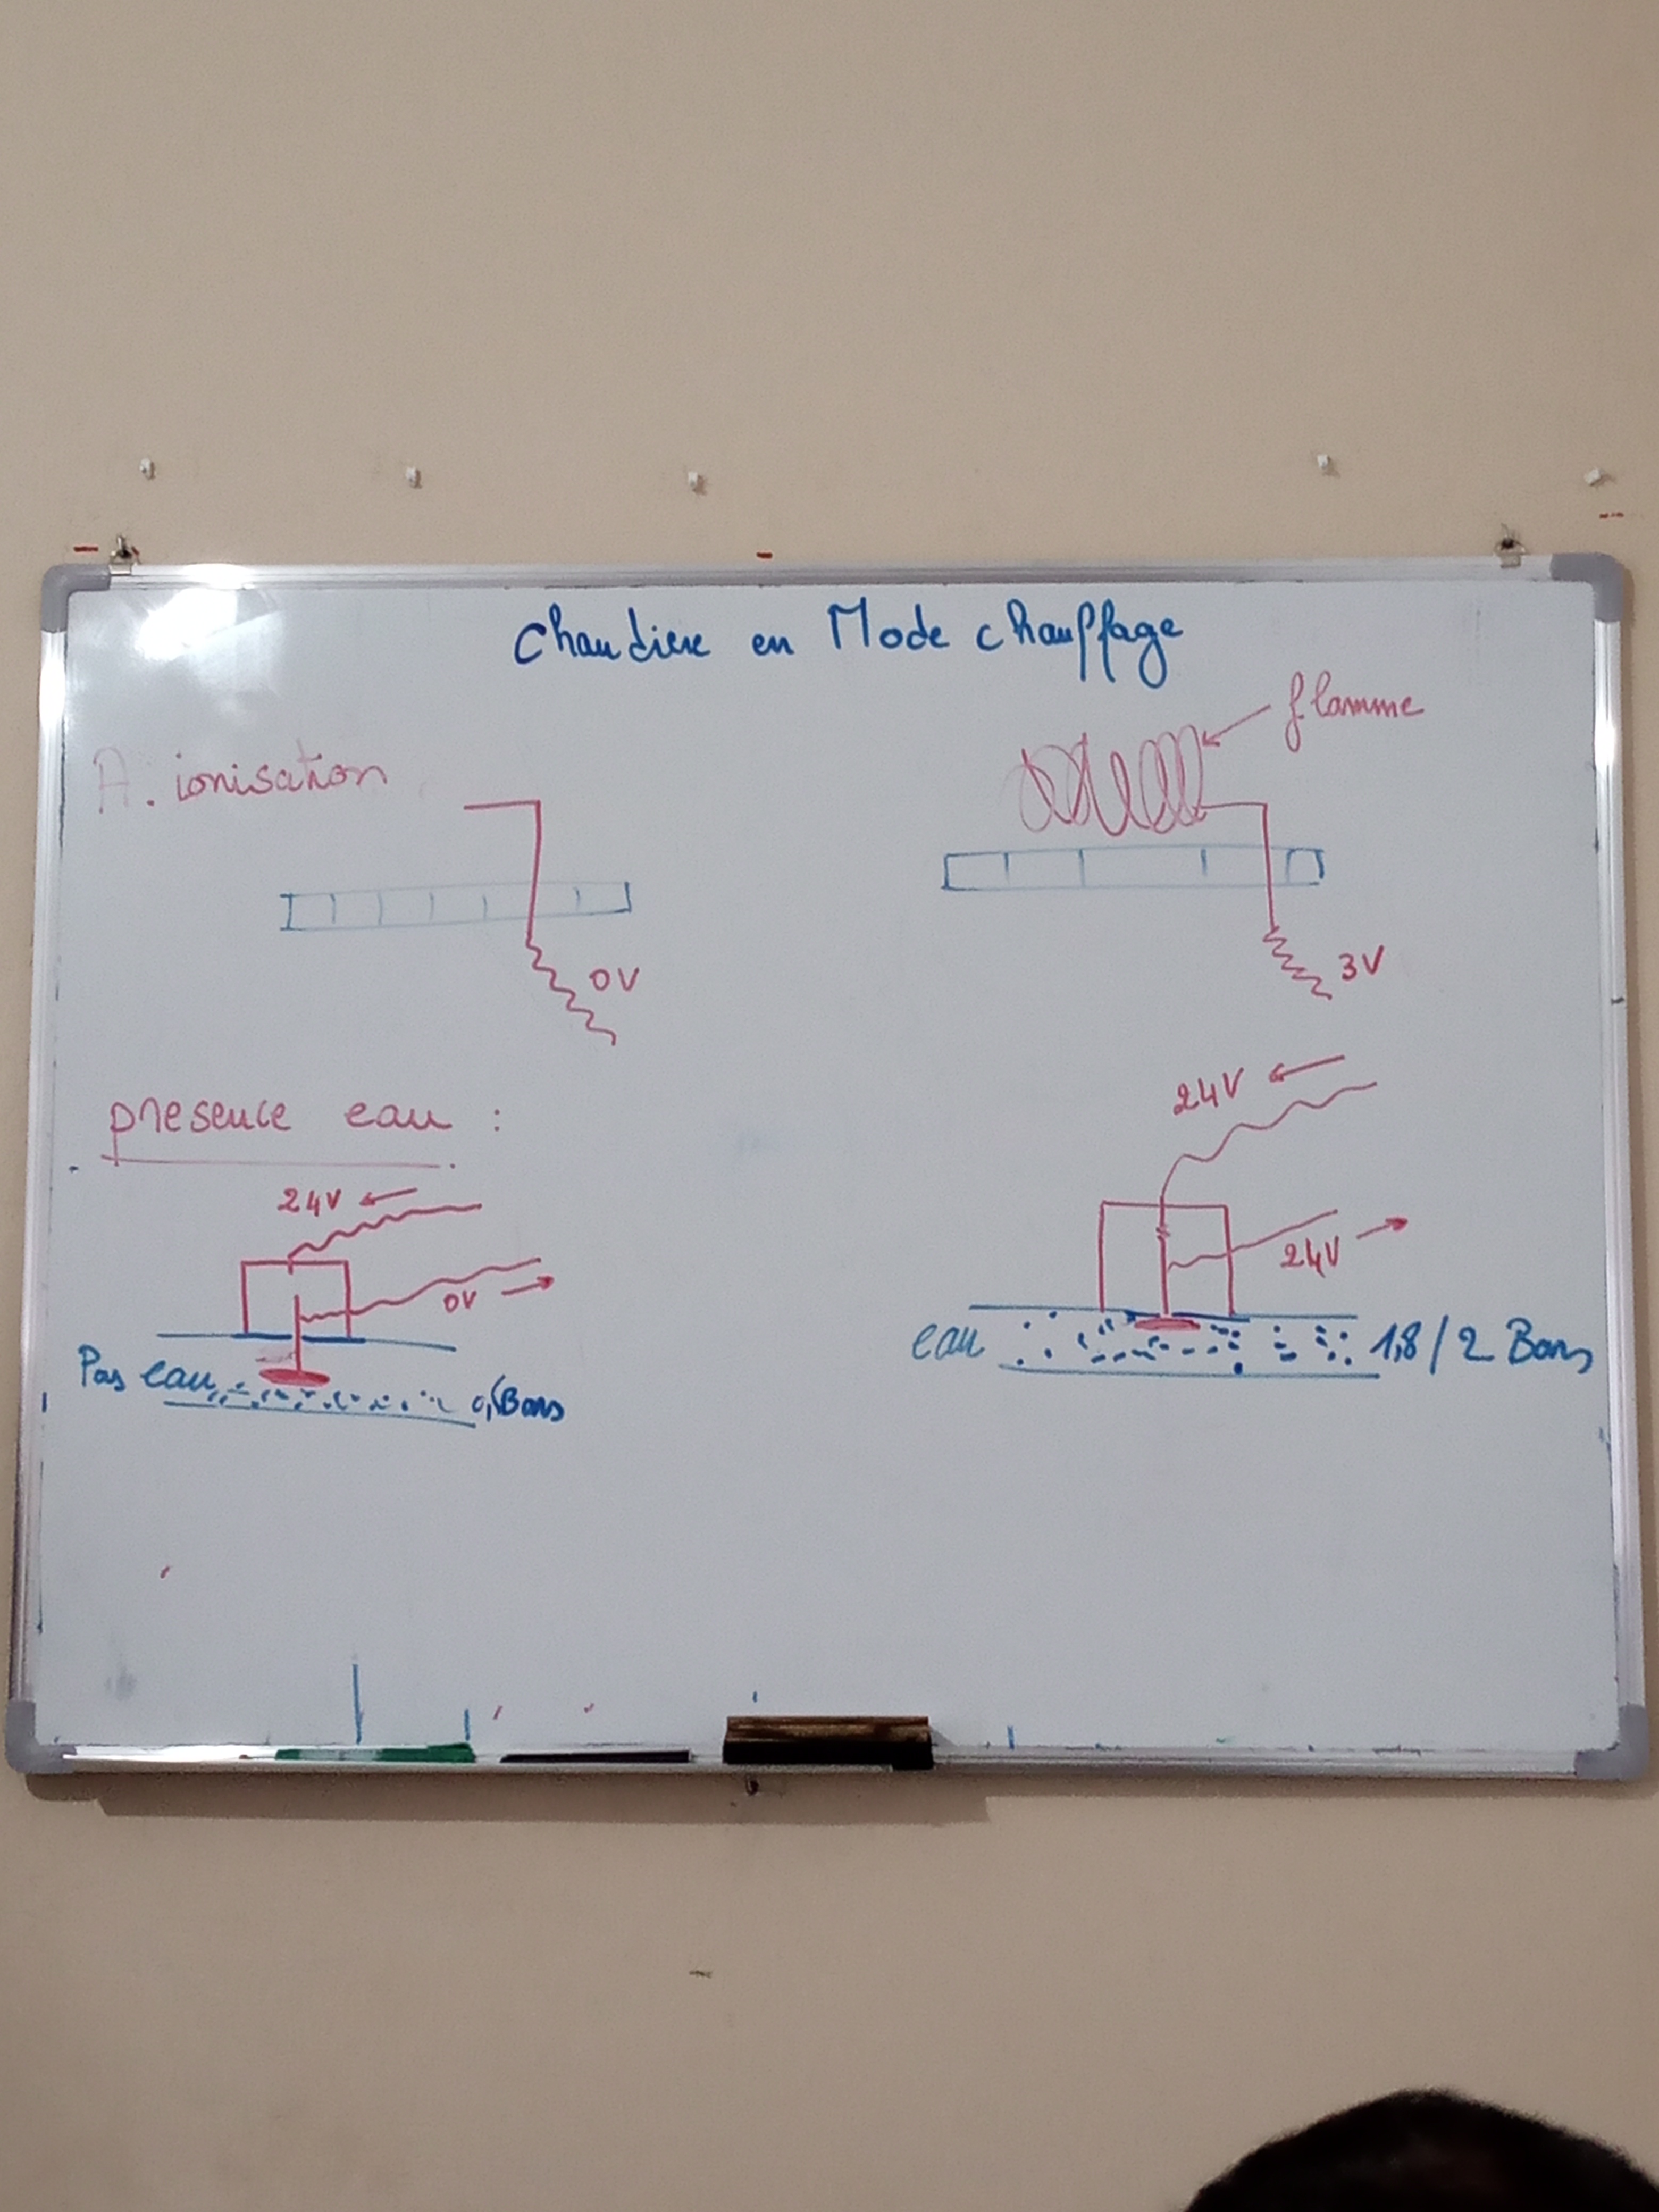 Chaudiere en Mode chauffage
flamme
A. ionisation
0V
3V
presence eau :
24V
0V
Pas eau
Bars
24V
24V
eau
1,8/2 Bars